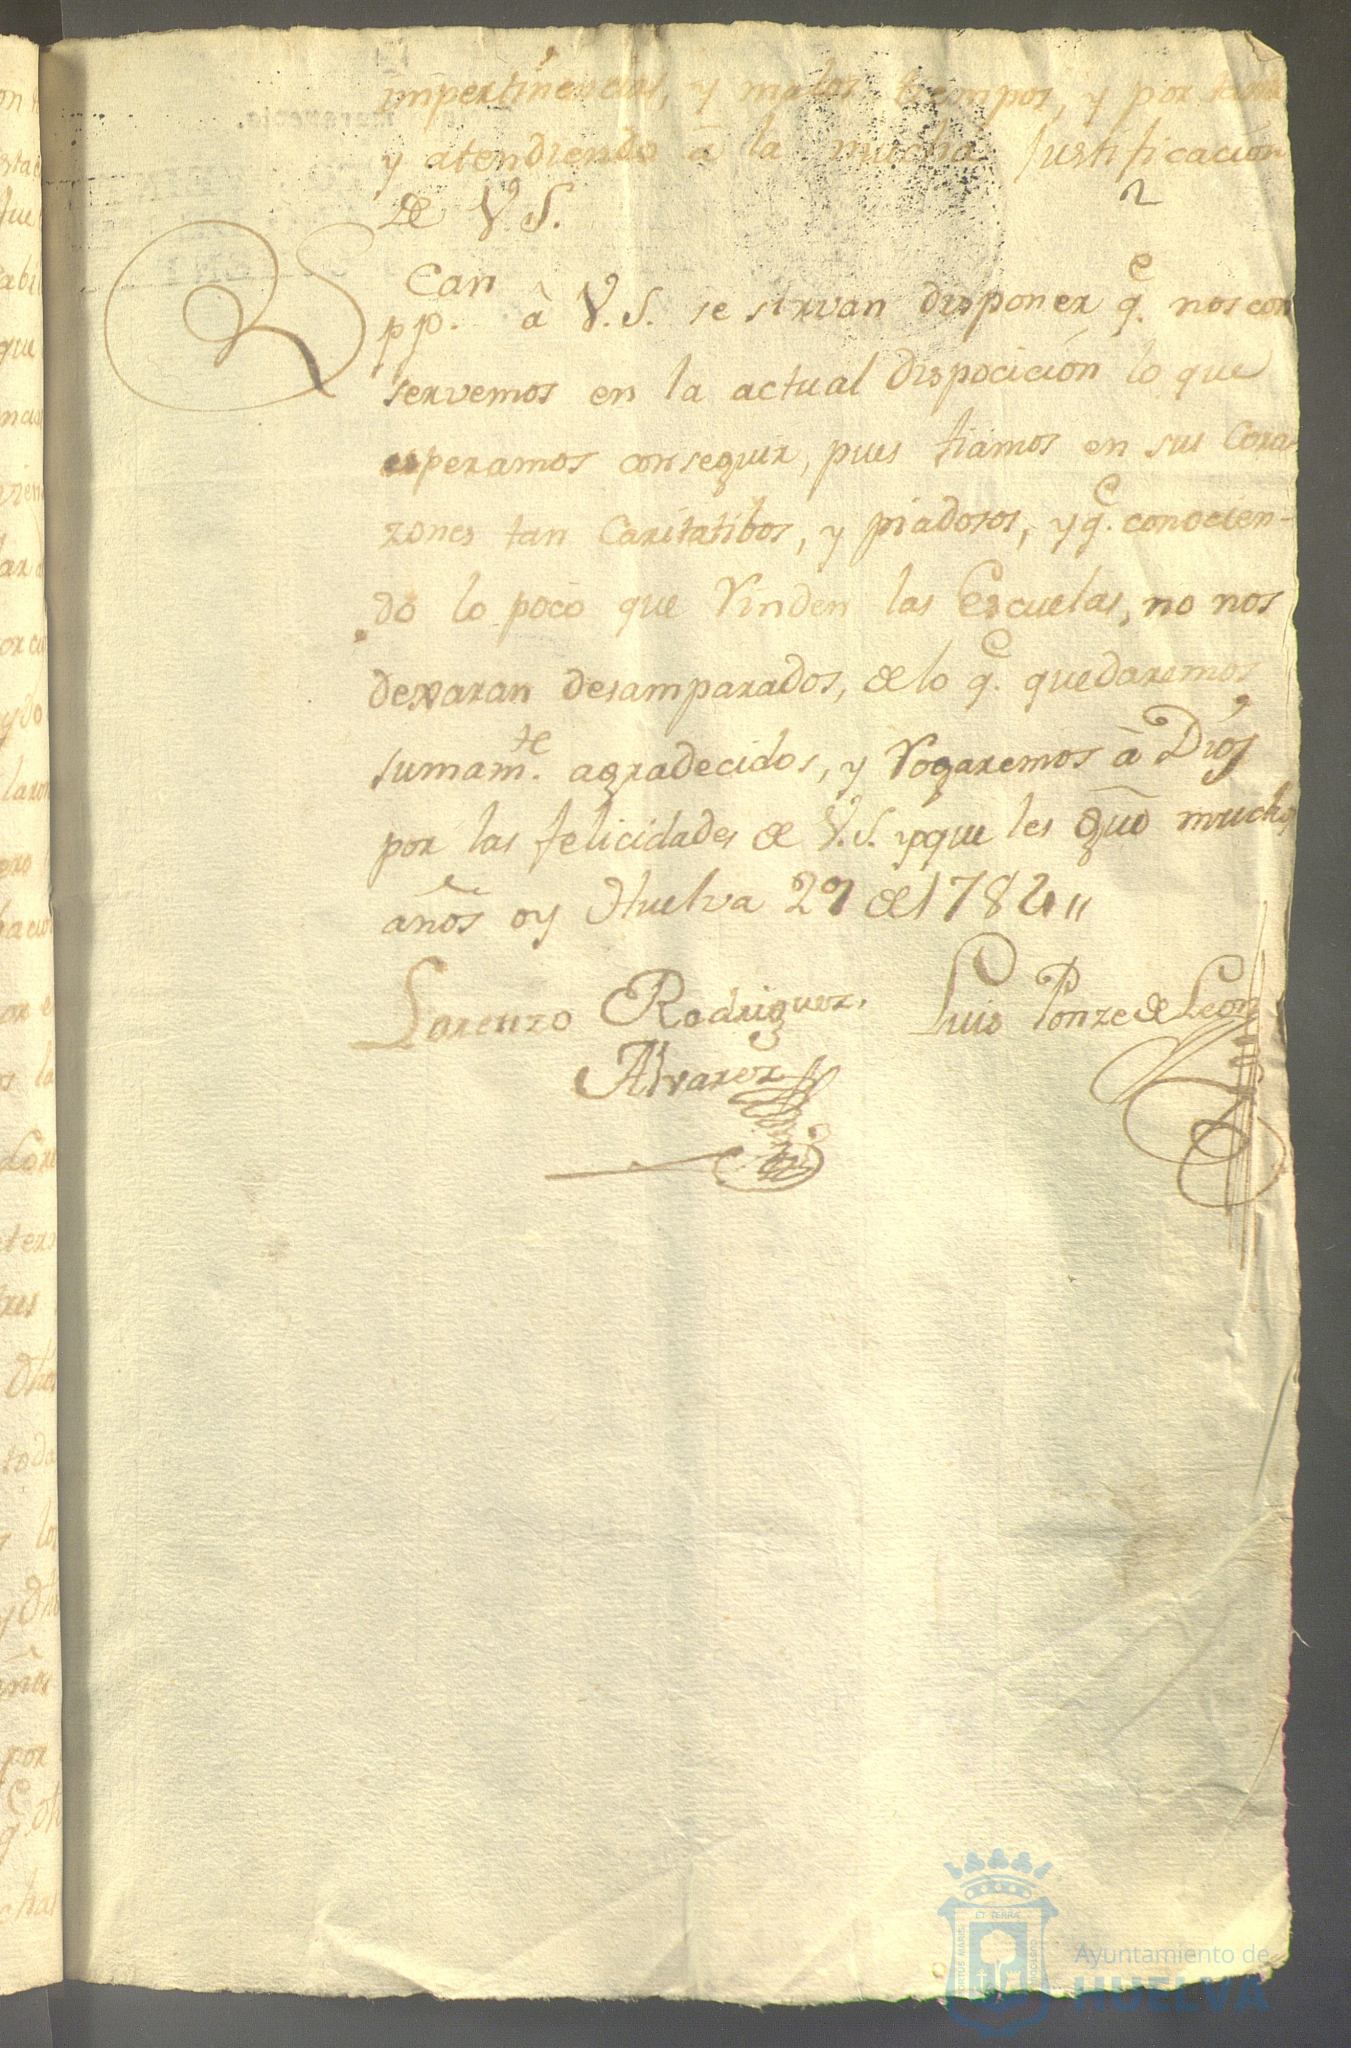 impertinencias, y malos tiempos, y por
y atendiendo â la mucha Justificacion
de V.S.
can
pp. à V.S. se sirvan disponer q.e nos con
servemos en la actual dispocicion lo que
esperamos conseguir, pues fiamos en sus Cora-
zones tan Caritatibos, y piadosos, y q.e conocien-
do lo poco que Rinden las Escuelas, no nos
dexaran desamparados, de lo q.e quedaremos
sumam.te agradecidos, y Rogaremos à Dios
por las felicidades de V.S. y que les gue muchos
años oy Huelva 27 de 1784,,
Lorenzo Rodriguez Luis Ponze de Leon
Alvarez
Ayuntamiento de
HUELVA